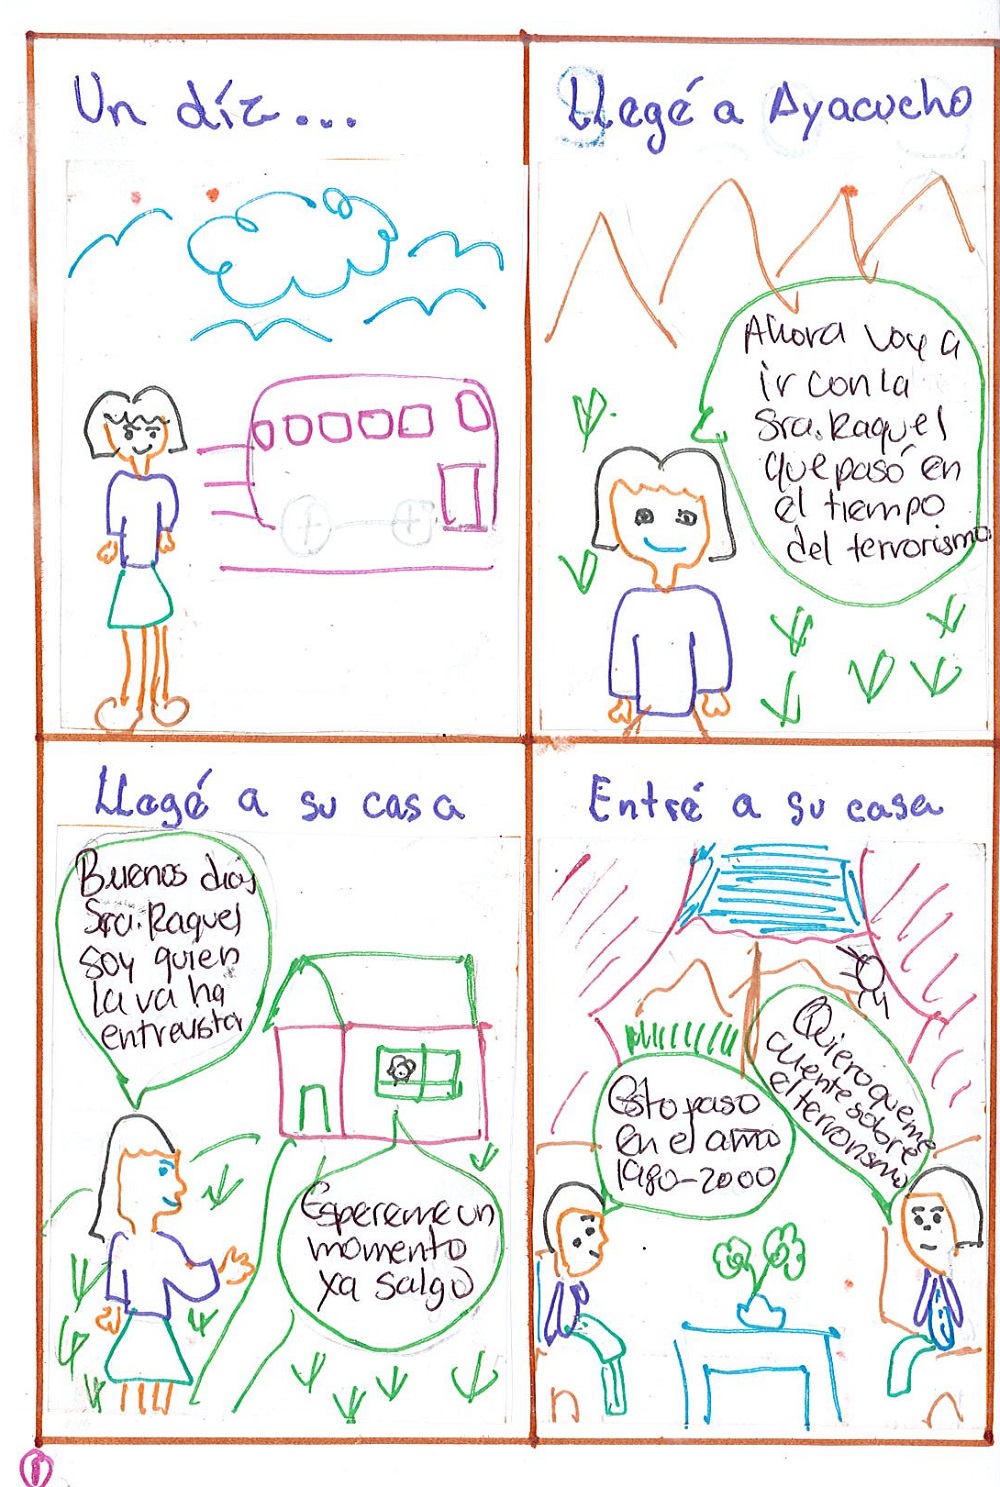 Un día...
Llegé a Ayacucho
Ahora voy a
ir con la
Sra. Raquel
que pasó en
el tiempo
del terrorismo
Llegé a su casa
Buenos días
Sra. Raquel
soy quien
la va ha
entrevistar
Espereme un
momento
ya salgo
Entré a su casa
Quiero que me
cuente sobre
el terrorismo
Esto paso
en el amo
1980-2000
1